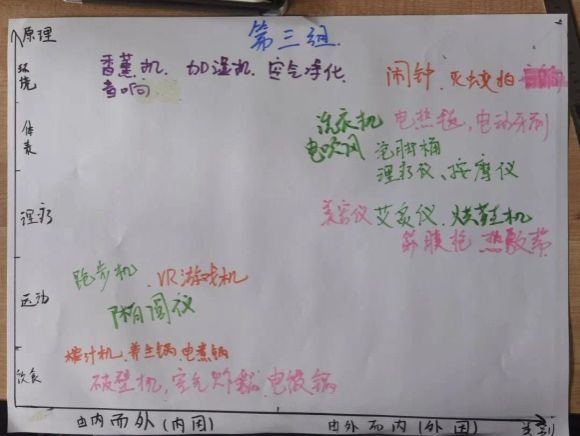 原理
第三组
环境
香薰机. 加湿机. 空气净化
音响
闹钟. 灭蚊拍
体表
洗衣机 电热毯, 电动牙刷
电吹风 泡脚桶
理疗仪、按摩仪
理疗
美容仪 艾灸仪. 烘鞋机
筋膜枪 热敷带
运动
跑步机. VR游戏机
体脂
榨汁机. 养生锅. 电煮锅
饮食
破壁机, 空气炸锅. 电饭锅
由内而外(内因)
由外而内(外因)
类别